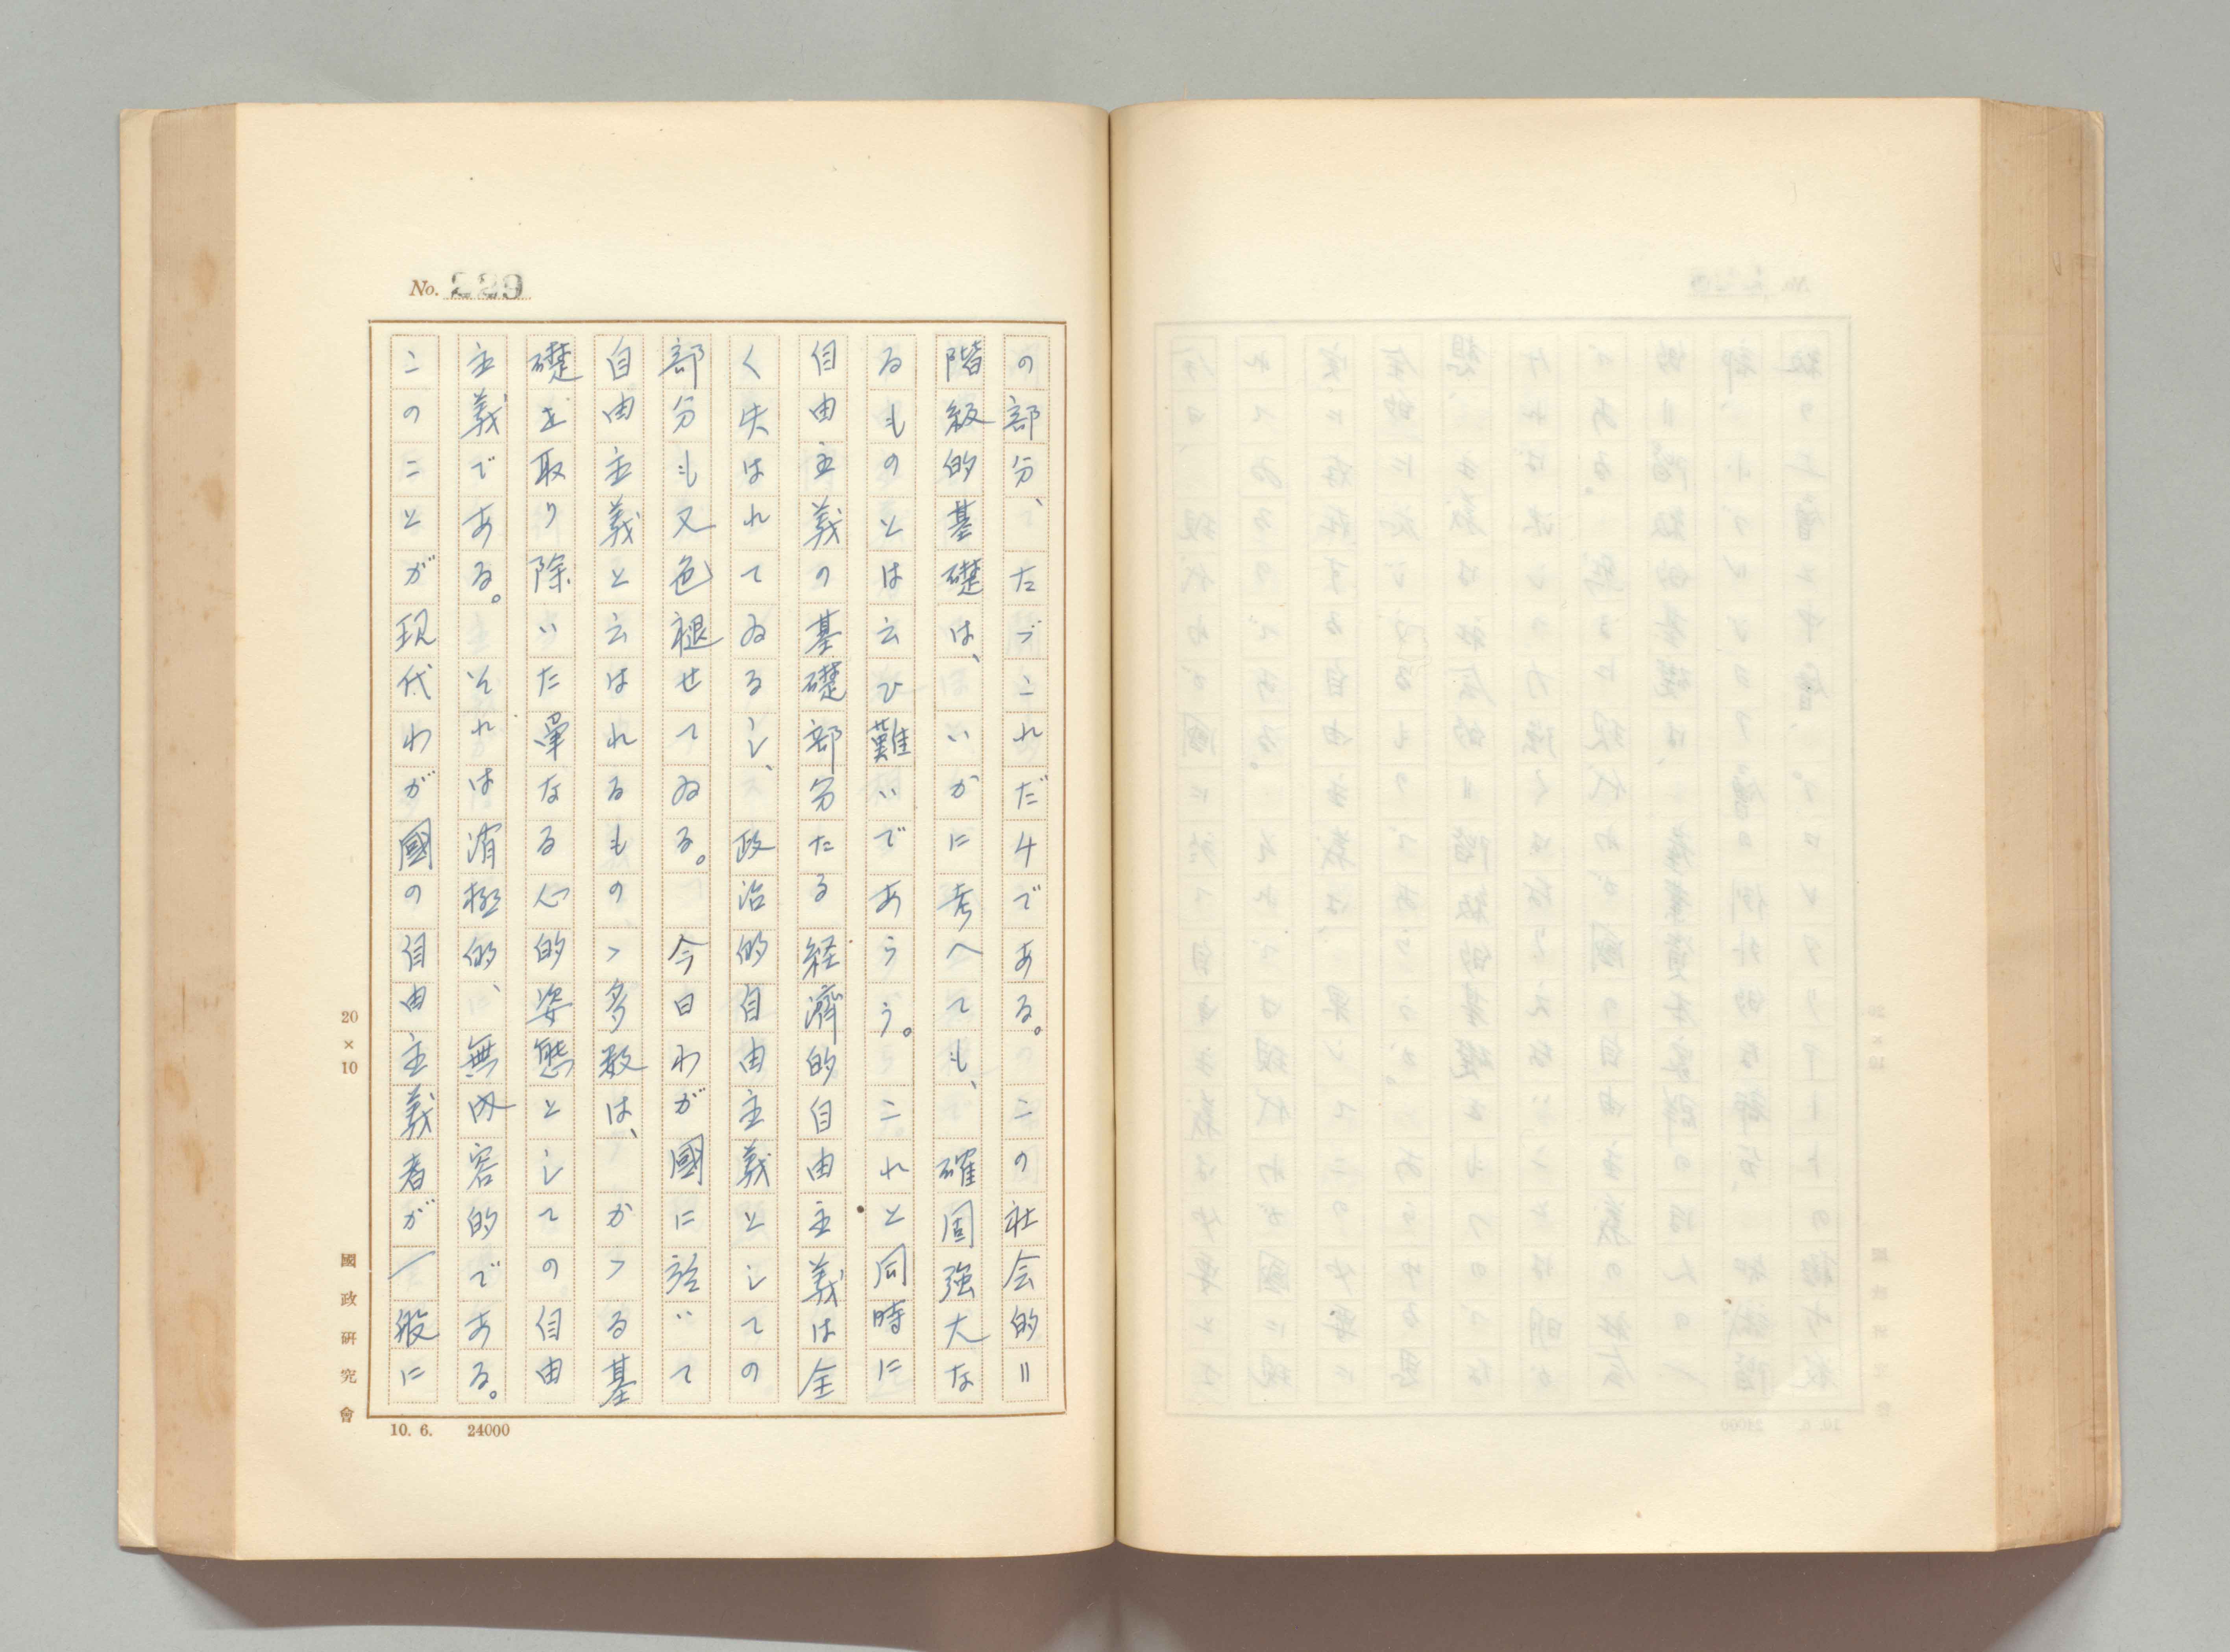 No. 229
の部分、たゞこれだけである。この社会的＝
階級的基礎は、いかに考へても、確固強大な
るものとは云ひ難いであらう。これと同時に
自由主義の基礎部分たる経済的自由主義は全
く失はれてゐるし、政治的自由主義としての
部分も又色褪せてゐる。今日わが國に於いて
自由主義と云はれるものゝ多数は、かゝる基
礎を取り除いた単なる心的姿態としての自由
主義である。それは消極的、無内容的である。
このことが現代わが國の自由主義者が一般に
20×10
國政研究會
10. 6. 24000